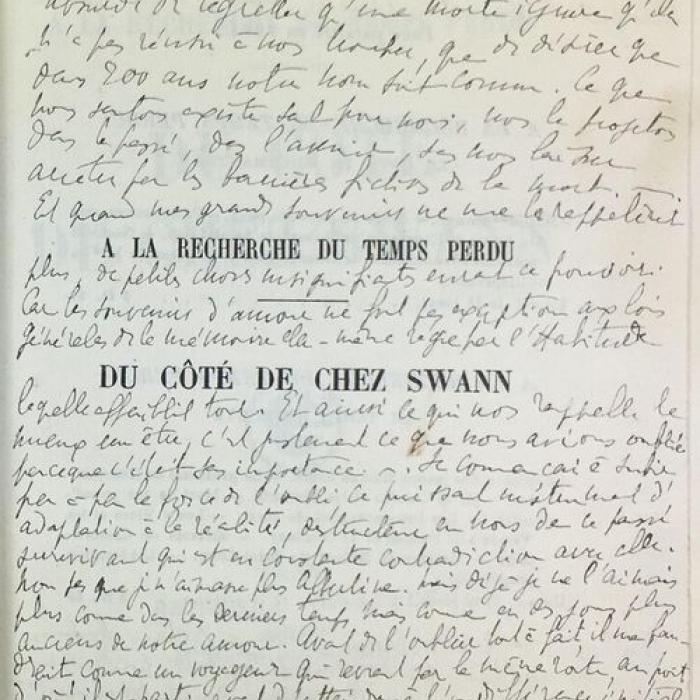 absurde de regretter qu'une morte ignore qu'elle
n'a pas réussi à nous tromper, que de désirer que
dans 200 ans notre nom soit connu. Ce que
nous sentons existe seul pour nous, nous le projetons
dans le passé, dans l'avenir, sans nous laisser
arrêter par les barrières fictives de la mort.
Et quand mes grands souvenirs ne me la rappelèrent
A LA RECHERCHE DU TEMPS PERDU
plus, de petites choses insignifiantes eurent ce pouvoir.
Car les souvenirs d'amour ne font pas exception aux lois
générales de la mémoire elle-même régie par l'Habitude
DU CÔTÉ DE CHEZ SWANN
laquelle affaiblit tout. Et ainsi ce qui nous rappelle le
mieux un être, c'est justement ce que nous avions oublié
parce que c'était sans importance. Je commençai à subir
peu à peu la force de l'oubli, ce puissant instrument d'
adaptation à la réalité, destructeur en nous de ce passé
survivant qui est en constante contradiction avec elle.
Non pas que je n'aimasse plus Albertine. Mais déjà je ne l'aimais
plus comme dans les derniers temps mais comme en des jours plus
anciens de notre amour. Avant de l'oublier tout à fait il me fau-
drait comme un voyageur qui revient par la même route au point
d'où il est parti, avant d'